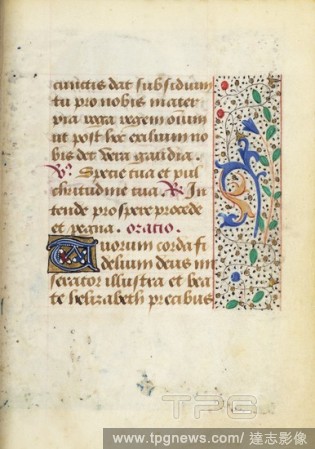 cunctis dat subsidium
tu pro nobis mater
pia roga regem omium
ut post hec exilium no
bis det vera gaudia.
V. Specie tua et pul
chritudine tua. R. In
tende prospere procede
et regna. oratio.
Tuorum corda fi
delium deus mi
serator illustra et bea
te helizabeth precibus
TPG
www.tpgnews.com/ 達志影像